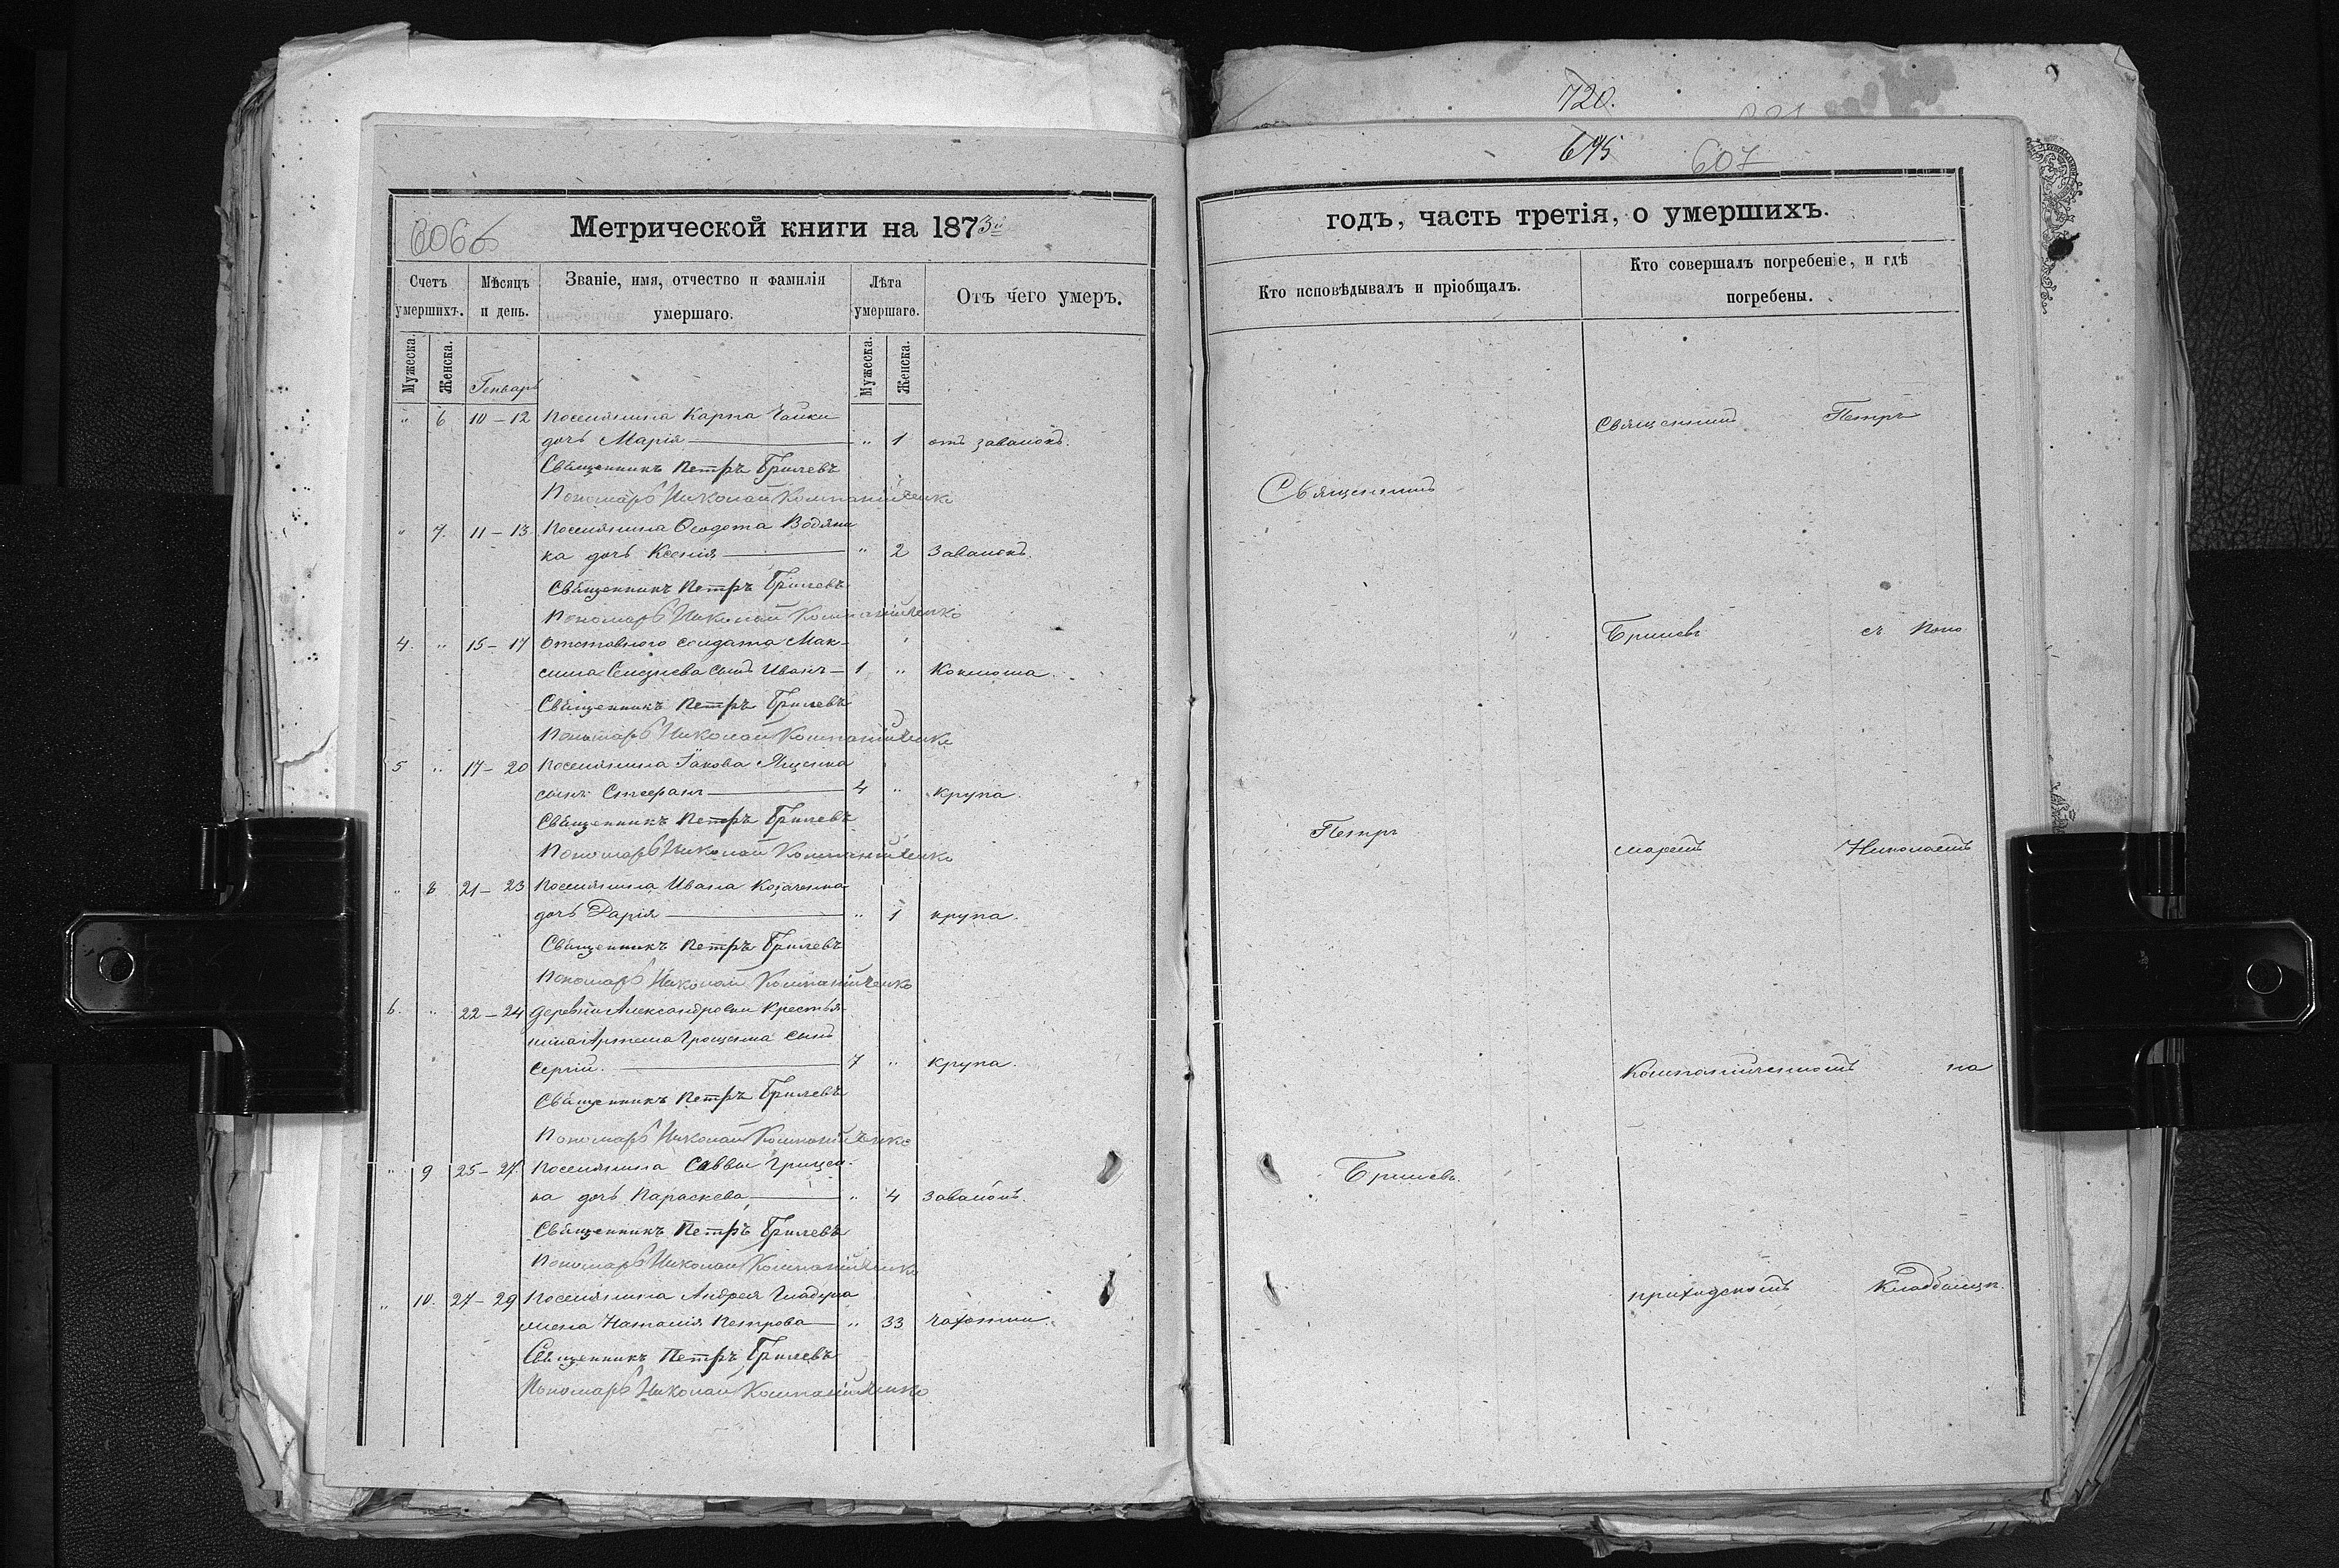 606 б
Метрической книги на 1873й
Счетъ умершихъ.
Мѣсяцъ и день.
Званіе, имя, отчество и фамилія умершаго.
Лѣта умершаго.
Отъ чего умеръ.
Мужеска.
Женска.
Генварь
Мужеска.
Женска.
" 6 10–12 Поселянина Карпа Чайки
дочь Марія " 1 отъ завалокъ.
Священникъ Петръ Брилевъ
Пономарь Николай Компанійченко
" 7. 11–13 Поселянина Ѳеодота Водяни
ка дочь Ксенія " 2 Завалокъ.
Священникъ Петръ Брилевъ
Пономарь Николай Компанійченко
4. " 15–17 Отставного солдата Мак-
сима Селезнева сынъ Иванъ 1 " Коклюша.
Священникъ Петръ Брилевъ
Пономарь Николай Компанійченко
5 " 17–20 Поселянина Іакова Ященка
сынъ Стефанъ 4 " крупа.
Священникъ Петръ Брилевъ
Пономарь Николай Компанійченко
" 8 21–23 Поселянина Ивана Козаченка
дочь Дарія " 1 крупа.
Священникъ Петръ Брилевъ
Пономарь Николай Компанійченко
6. " 22–24 деревни Александровки Крестья-
нина Артема Грощенка сынъ
Сергій. 7 " крупа.
Священникъ Петръ Брилевъ
Пономарь Николай Компанійченко
" 9 25–27. Поселянина Саввы Грицен-
ка дочь Параскева " 4 Завалокъ.
Священникъ Петръ Брилевъ
Пономарь Николай Компанійченко
" 10. 27–29 Поселянина Андрея Гладуна
жена Наталія Петрова " 33 Чахотки.
Священникъ Петръ Брилевъ
Пономарь Николай Компанійченко
720.
645 607
годъ, часть третія, о умершихъ.
Кто исповѣдывалъ и пріобщалъ.
Кто совершалъ погребеніе, и гдѣ погребены.
Священникъ
Петръ
Брилевъ.
Священникъ Петръ
Брилевъ съ Поно
маремъ Николаемъ
Компанійченкомъ на
приходскомъ Кладбищѣ.